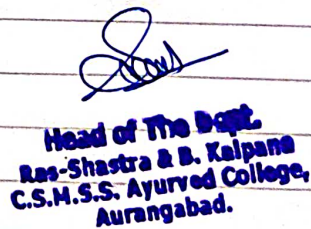 Head of The Dept.
Ras-Shastra & B. Kalpana
C.S.M.S.S. Ayurved College,
Aurangabad.